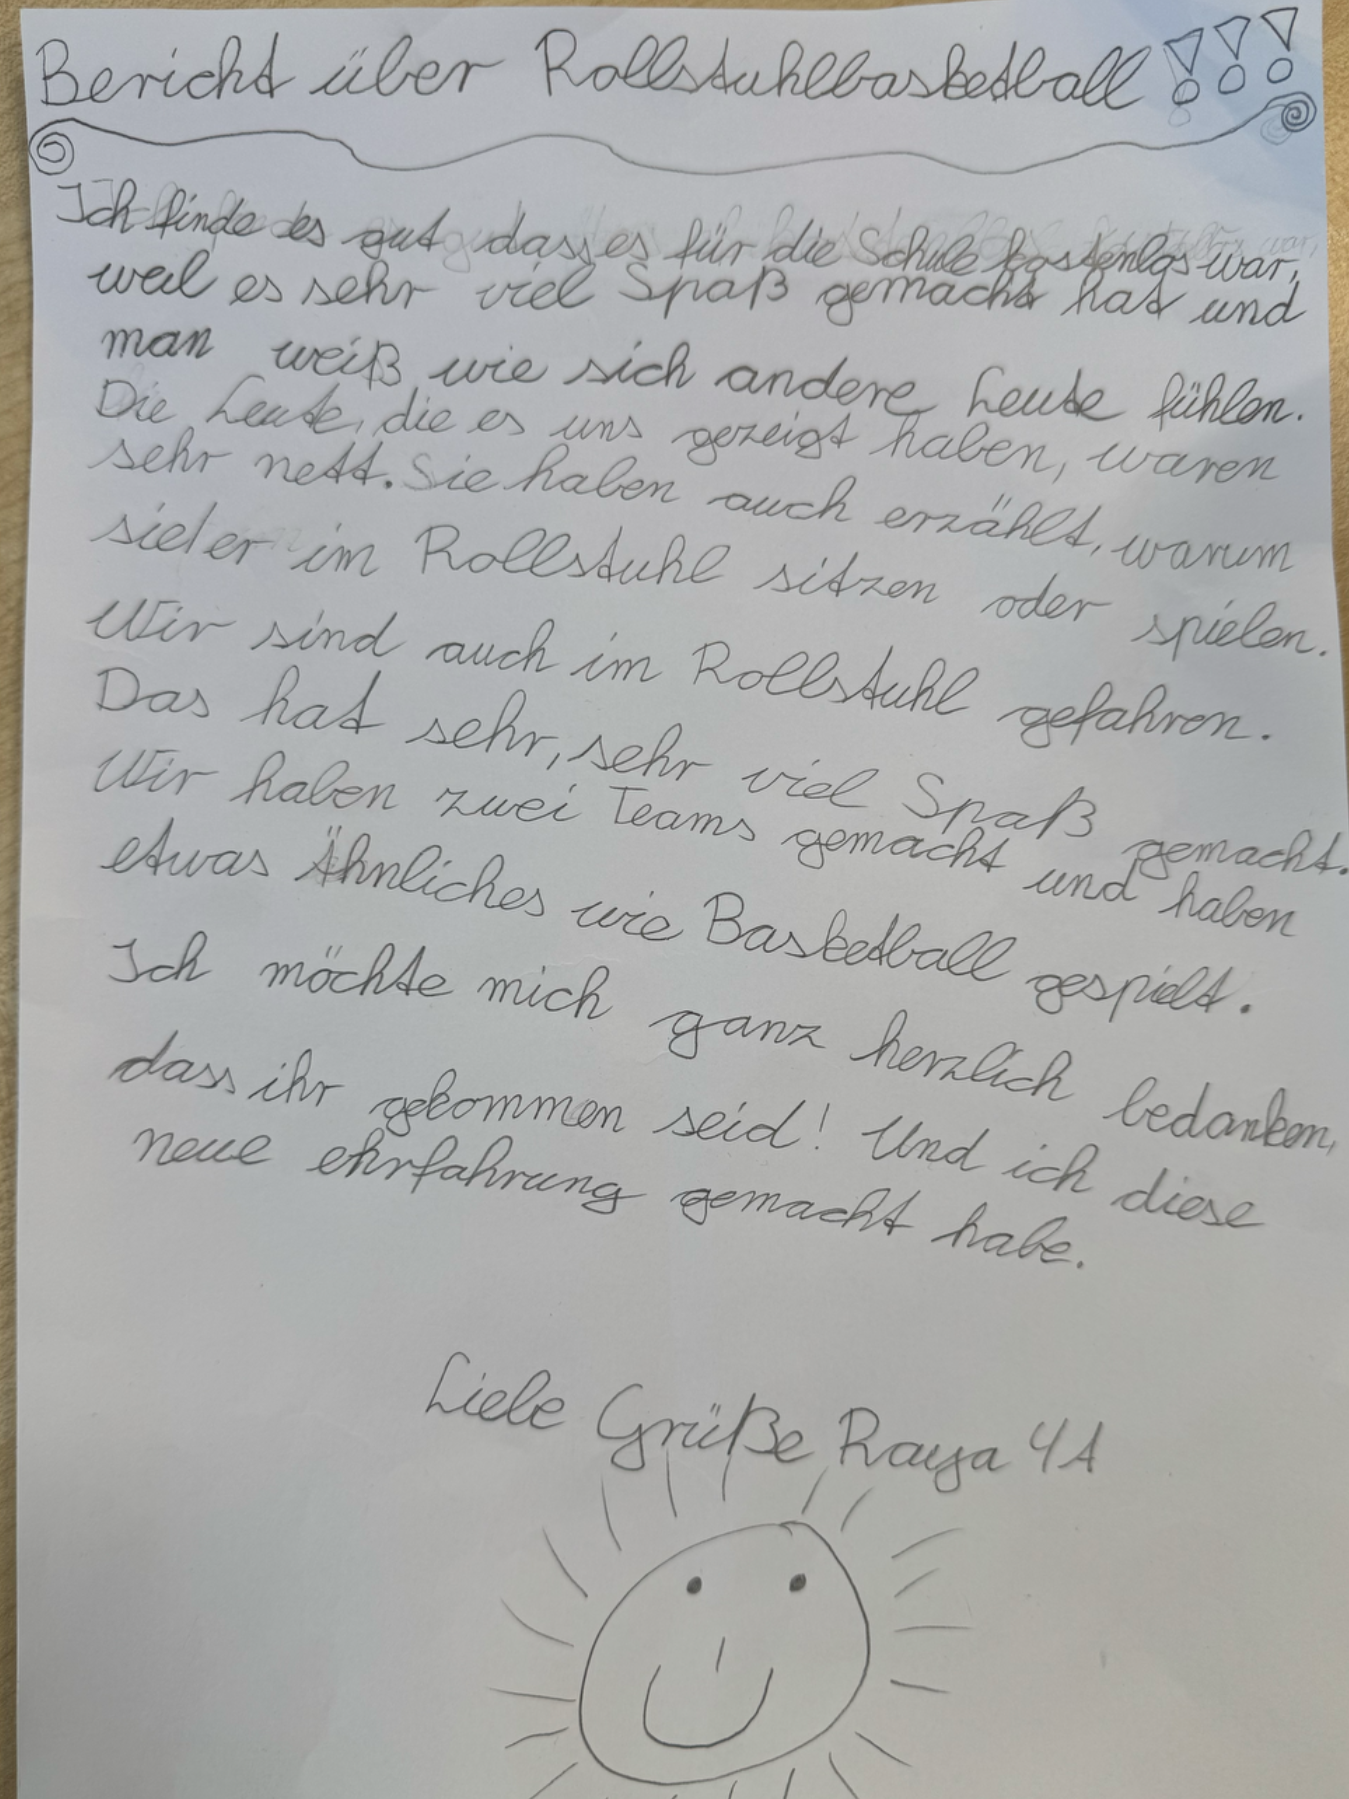 Bericht über Rollstuhlbasketball!!!
Ich finde es gut dass es für die Schule kostenlos war,
weil es sehr viel Spaß gemacht hat und
man weiß, wie sich andere Leute fühlen.
Die Leute, die es uns gezeigt haben, waren
sehr nett. Sie haben auch erzählt, warum
sie/er im Rollstuhl sitzen oder spielen.
Wir sind auch im Rollstuhl gefahren.
Das hat sehr, sehr viel Spaß gemacht.
Wir haben zwei Teams gemacht und haben
etwas Ähnliches wie Basketball gespielt.
Ich möchte mich ganz herzlich bedanken,
dass ihr gekommen seid! Und ich diese
neue ehrfahrung gemacht habe.
Liebe Grüße Raya 4A